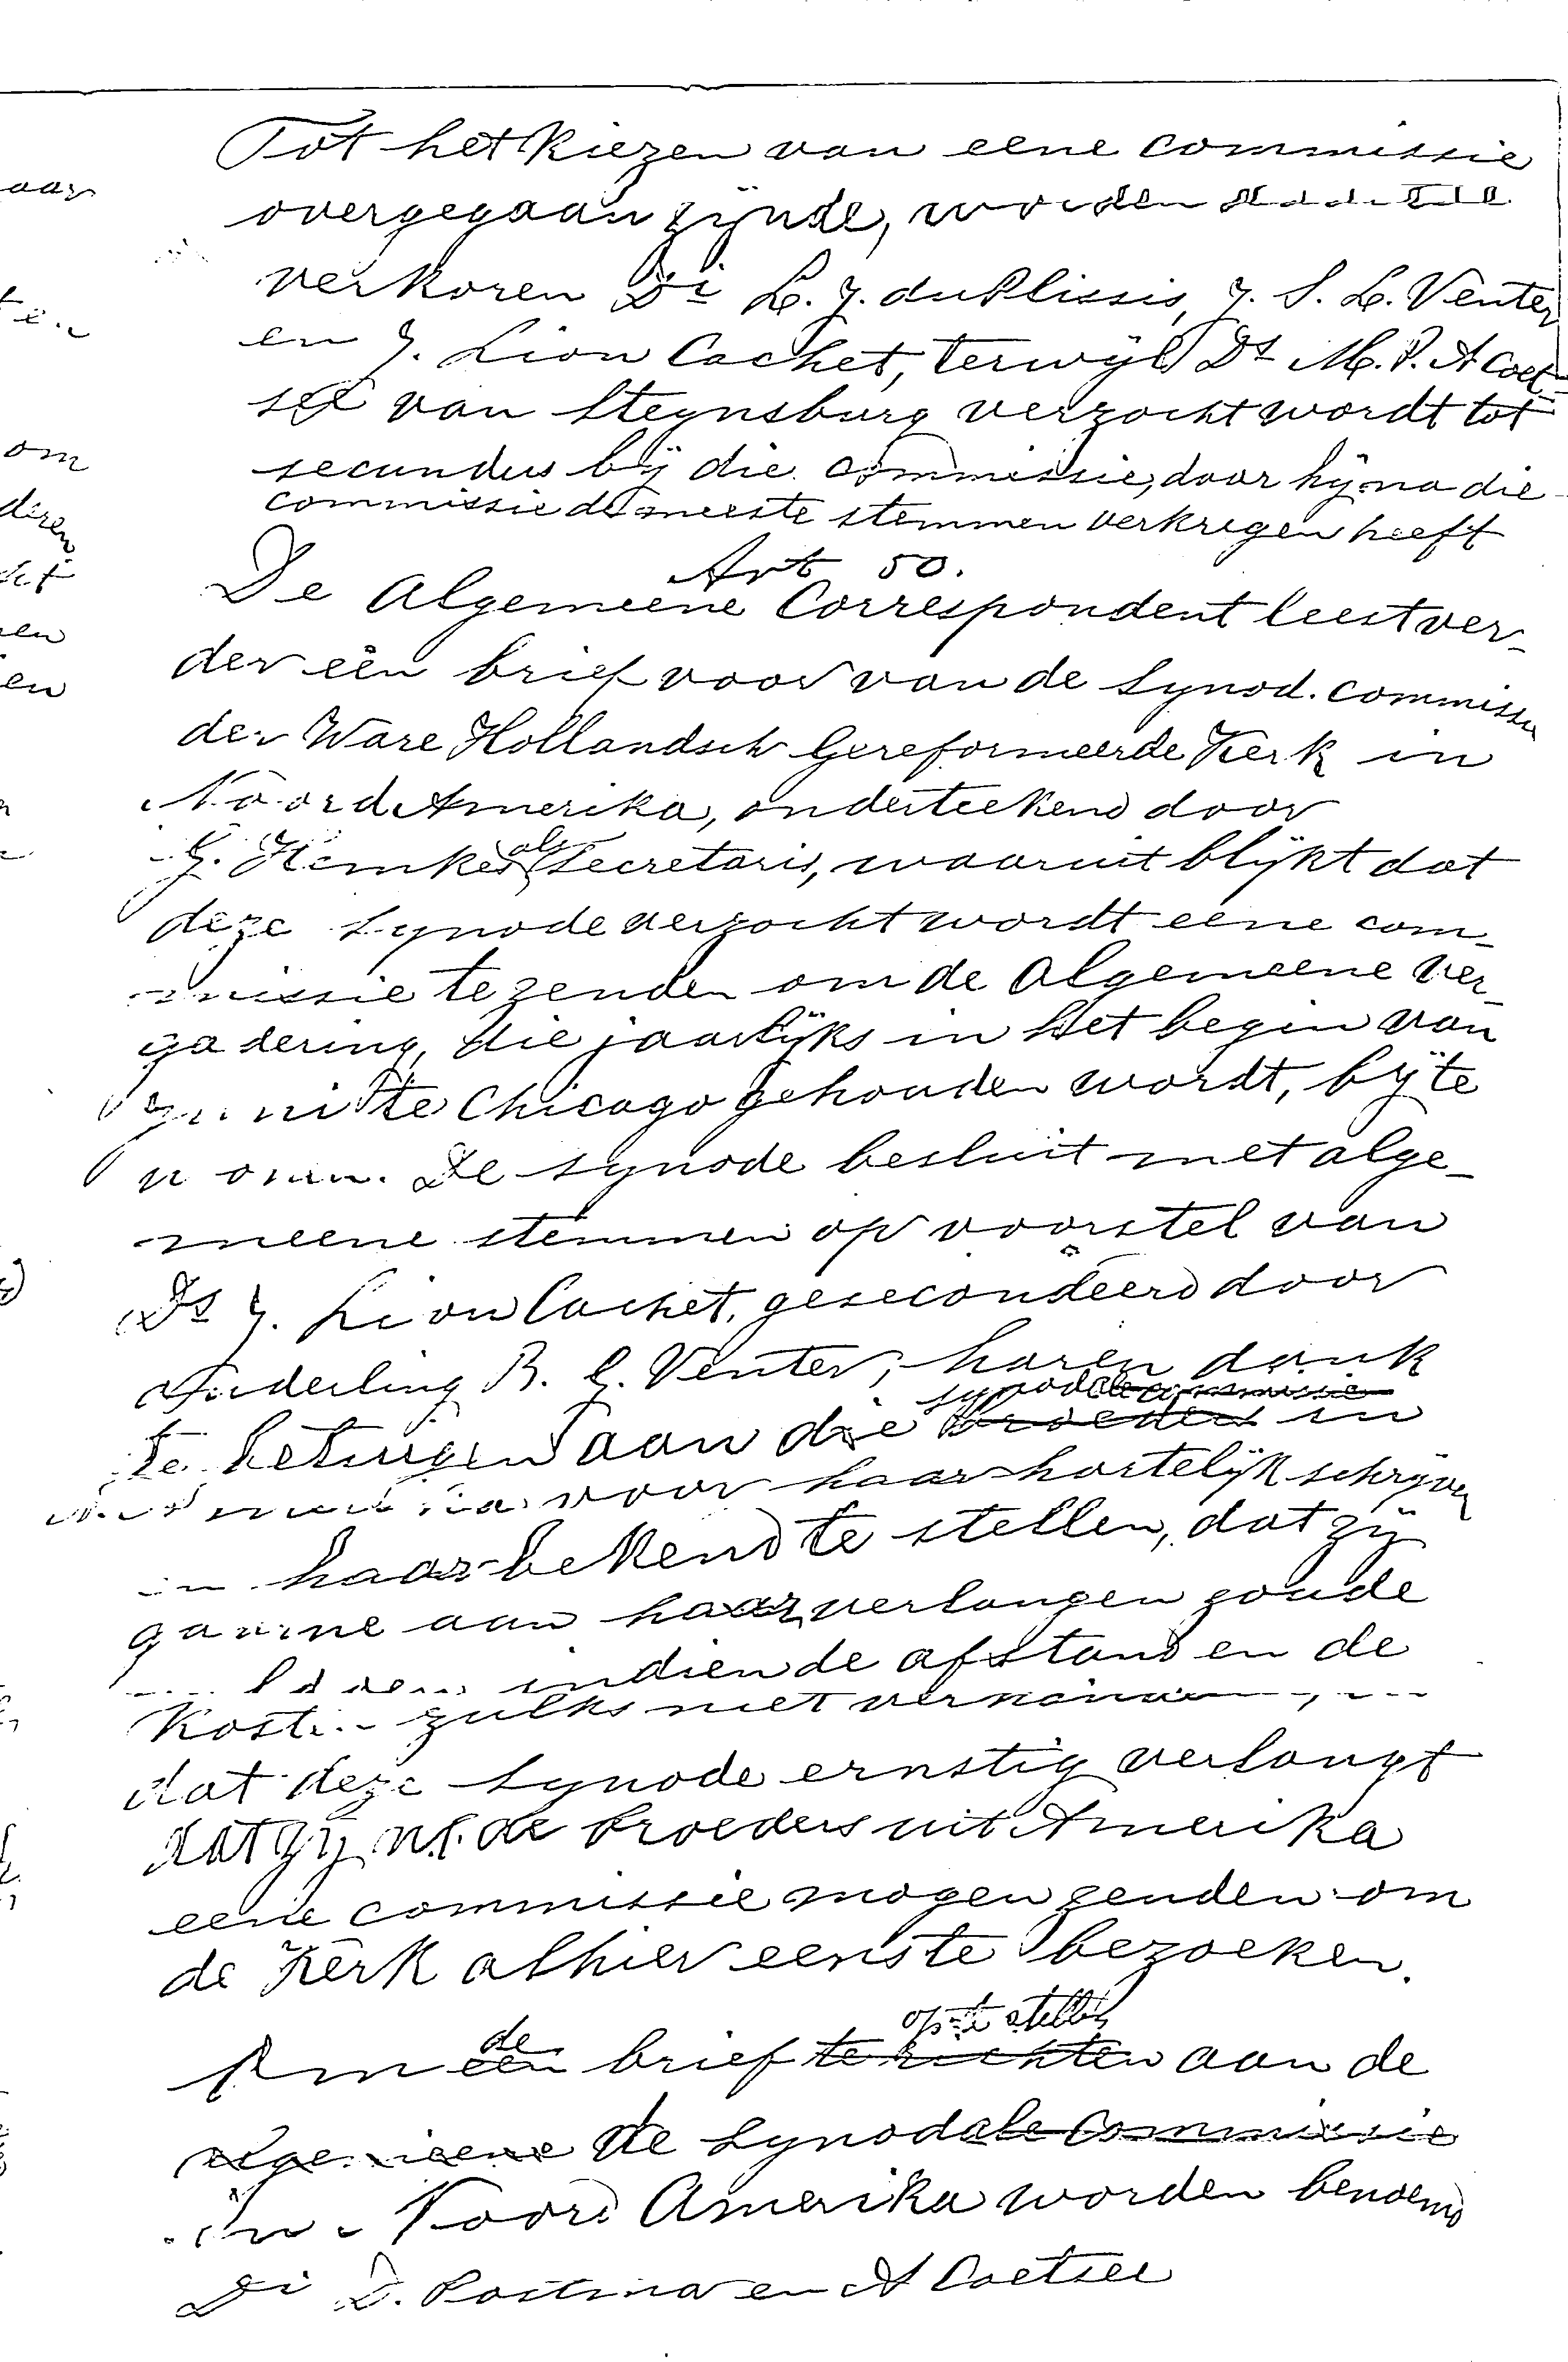 Tot het Kiezen van eene commissie
overgegaan zynde, worden
verkoren Di L. J. du Plissis, J. S. L. Venter
en J. Lion Cachet, terwyl Ds M. P. A Coet-
see van Steynsburg verzocht wordt tot
secundus by die commissie, daar hy na die
commissie de meeste stemmen verkregen heeft
Art 50.
De Algemeene Correspondent leest ver-
der een brief voor van de Synod. commissie
der Ware Hollandsch Gereformeerde Kerk in
Noord Amerika, onderteekend door
G. Hemkes als Secretaris, waaruit blykt dat
deze Synode verzocht wordt eene com-
missie te zenden om de Algemeene Ver-
gadering, die jaarlyks in het begin van
Juni te Chicago gehouden wordt, by te
wonen. De Synode besluit met alge-
meene stemmen op voorstel van
Ds J. Lion Cachet, gesecondeerd door
Ouderling B. G. Venter, haren dank
synodale commissie
te betuigen aan die broeders in
voor haar hartelyk schryven
en haar bekend te stellen, dat zy
gaarne aan haar verlangen zoude
voldoen indien de afstand en de
Kosten zulks niet verhinderen,
dat deze Synode ernstig verlangt
dat zy nl. de broeders uit Amerika
eene commissie mogen zenden om
de Kerk alhier eens te bezoeken.
de op te stellen
Om een brief te richten aan de
algemeene de Synodale Commissie
in Noord Amerika worden benoemd
Di D. Postma en A Coetsee